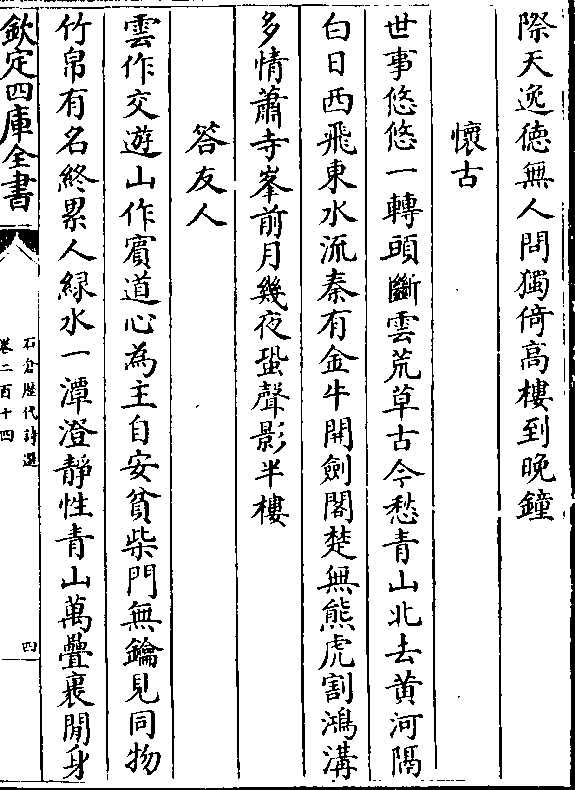 際天逸德無人問獨倚高樓到晚鐘
懷古
世事悠悠一轉頭斷雲荒草古今愁青山北去黄河隔
白日西飛東水流秦有金牛開劍閣楚無熊虎割鴻溝
多情蕭寺峯前月幾夜蛩聲影半樓
答友人
雲作交遊山作賓道心為主自安貧柴門無鑰見同物
竹帛有名終累人緑水一潭澄靜性青山萬疊裹閒身
欽定四庫全書
石倉歴代詩選
卷二百十四
四